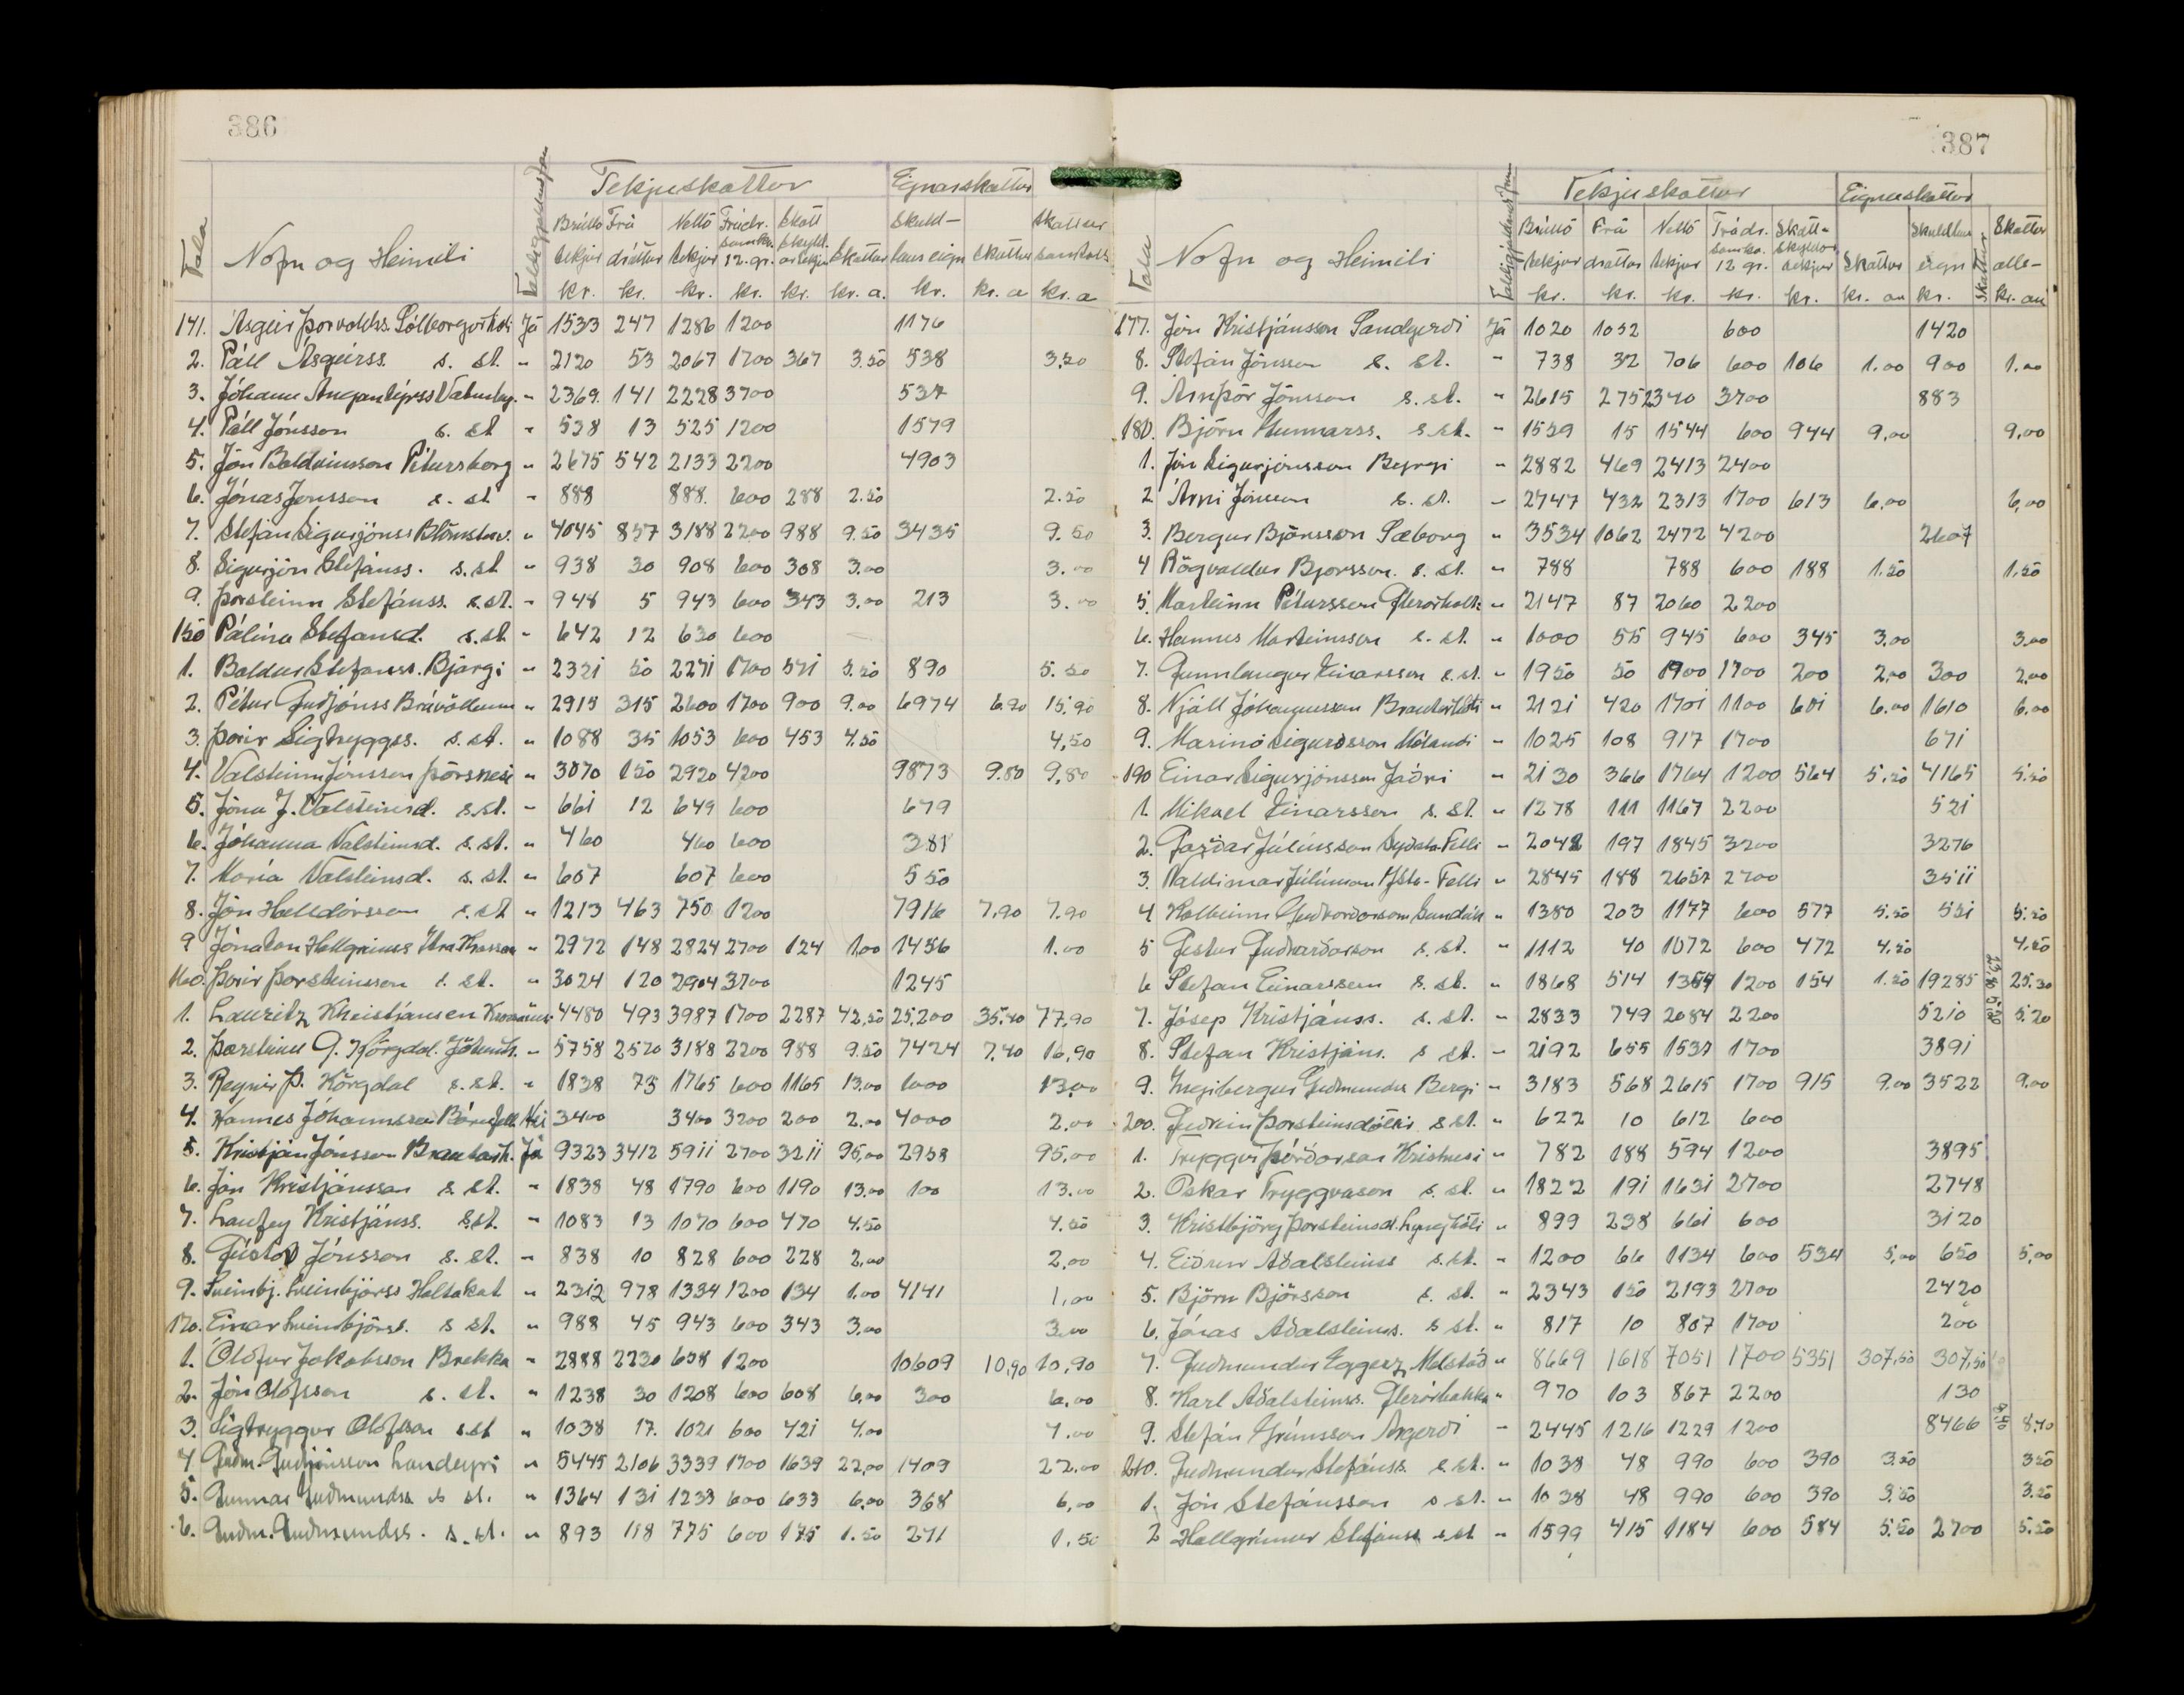 386
Tekjuskattur Eignarskattur
Tala Nöfn og Heimili Brúttó tekjur kr. Frá dráttur kr. Nettó tekjur kr. Frádr. samkv. 12. gr. kr. Skatt skyld. ar tekjur kr. Skattur kr. a. Skuld- laus eign kr. Skattur kr. a Skattur samtals kr. a
141. Ásgeir Þorvaldss. Sólborgarhóli Já 1533 247 1286 1200 1176
2. Páll Ásgeirss. s. st. " 2120 53 2067 1700 367 3.50 538 3.50
3. Jóhann Angantýrss " 2369 141 2228 3700 537
4. Páll Jónsson s. st " 538 13 525 1200 1579
5. Jón Baldvinsson Pétursborg " 2675 542 2133 2200 4903
6. Jónas Jónsson s. st " 888 888 600 288 2.50 2.50
7. Stefán Sigurjónss " 4045 857 3188 2200 988 9.50 3435 9.50
8. Sigurjón Stefánss. s. st " 938 30 908 600 308 3.00 3.00
9. Þorsteinn Stefánss. s. st. " 948 5 943 600 343 3.00 213 3.00
150 Pálína Stefansd. s. st " 642 12 630 600
1. Baldur Stefanss. Bjargi " 2321 50 2271 1700 571 5.50 890 5.50
2. Pétur Guðjónss Brávöllum " 2915 315 2600 1700 900 9.00 6974 6.90 15.90
3. Þorir Sigtryggss. s. st. " 1088 35 1053 600 453 4.50 4,50
4. Valsteinn Jónsson Þórsnesi " 3070 150 2920 4200 9873 9.80 9,80
5. Jóna J. Valsteinsd. s. st. " 661 12 649 600 679
6. Jóhanna Valsteinsd. s. st. " 460 460 600 381
7. María Valsteinsd. s. st. " 607 607 600 550
8. Jón Halldórsson s. st " 1213 463 750 1200 7916 7.90 7.90
9 Jónatan Hallgrímss " 2972 148 2824 2700 124 1,00 1456 1.00
160. Þorir Þorsteinsson s. st. " 3024 120 2904 3700 1245
1. Lauritz Khristjánsen " 4480 493 3987 1700 2287 42,50 25,200 35.40 77,90
2. Þorsteinn G. Hörgdal " 5758 2570 3188 2200 988 9.50 7424 7.40 16,90
3. Regnir Þ. Hörgdal s. st. " 1838 73 1765 600 1165 13,00 1000 13,00
4. Hannes Jóhannsson Nei 3400 3400 3200 200 2.00 4000 2.00
5. Kristján Jónsson Já 9323 3412 5911 2700 3211 95,00 2958 95,00
6. Jón Kristjánsson s. st. " 1838 48 1790 600 1190 13.00 100 13.00
7. Laufey Kristjánss. s.st. " 1083 13 1070 600 470 4.50 4.50
8. Gústav Jónsson s. st. " 838 10 828 600 228 2,00 2,00
9. Sveinbj. Sveinbjörss Holtakot " 2312 978 1334 1200 134 1.00 4141 1,00
170. Einar Sveinbjörss. s st. " 988 45 943 600 343 3,00 3,00
1. Ólafur Jakobsson Brekka " 2888 2230 658 1200 10609 10,90 10,90
2. Jón Olafsson s. st. " 1238 30 1208 600 608 6,00 300 6,00
3. Sigtryggur Olafsson s.st " 1038 17. 1021 600 421 4.00 4.00
4 Guðm. Guðjónsson Landeyri " 5445 2106 3339 1700 1639 22,00 1409 22.00
5. Gunnar Guðmundss. s st. " 1364 131 1233 600 633 6,00 368 6,00
6. Guðm. Guðmundss. s. st. " 893 118 775 600 175 1.50 271 1.50
387
Tekjuskattur Eignaskattur
Tala Nöfn og Heimili Brúttó tekjur kr. Frá dráttur kr. Nettó tekjur kr. Frádr. samkv. 12 gr. kr. Skatt- skyldar tekjur kr. Skattur kr. au Skuldlaus eign kr. Skattur Skattur alls- kr. au
177. Jón Kristjánsson Sandgerði Já 1020 1032 600 1420
8. Stefán Jónsson s. st. " 738 32 706 600 106 1.00 900 1.00
9. Arnþór Jónsson s. st. " 2615 275 2340 3700 883
180. Björn Gunnarss. s. st. " 1559 15 1544 600 944 9,00 9,00
1. Jón Sigurjónsson Bergi " 2882 469 2413 2400
2. Árni Jónsson s. st. " 2747 432 2313 1700 613 6,00 6,00
3. Bergur Björnsson Sæborg " 3534 1062 2472 4200 2607
4 Rögnvaldur Bjorsson. s. st. " 788 788 600 188 1.50 1.50
5. Marteinn Pétursson " 2147 87 2060 2200
6. Hannes Marteinsson s. st. " 1000 55 945 600 345 3.00 3.00
7. Gunnlaugur Einarsson s. st. " 1950 50 1900 1700 200 2,00 300 2,00
8. Njáll Jóhannesson " 2121 420 1701 1100 601 6.00 1610 6.00
9. Marinó Sigurðsson " 1025 108 917 1700 671
190 Einar Sigurjónsson Jaðri " 2130 366 1764 1200 564 5,50 4165 5.50
1. Mikael Einarsson s. st. " 1278 111 1167 2200 521
2. Garðar Júlíusson Syðsta-Felli " 2042 197 1845 3200 3276
3. Valdimar Júlíusson Ysta-Felli " 2845 188 2657 2700 3511
4 Kolbeinn " 1380 203 1177 600 577 5.50 551 5.50
5 Gestur s. st. " 1112 40 1072 600 472 4,50 4,50
6 Stefan Einarssen s. st. " 1868 514 1354 1200 154 1.50 19285 23.80 25.30
7. Jósep Kristjánss. s. st. " 2833 749 2084 2200 5210 5.20 5.20
8. Stefan Kristjáns. s st. " 2192 655 1537 1700 3891
9. Ingibergur Guðmundss Bergi " 3183 568 2615 1700 915 9,00 3522 9.00
200. Guðrún Þorsteinsdóttir s st. " 622 10 612 600
1. Tryggvi Þórðarson Kristnesi " 782 188 594 1200 3895
2. Oskar Tryggvason s. st. " 1822 191 1631 2700 2748
3. Kristbjörg Þorsteinsd. Lynghóli " 899 238 661 600 3120
4. Eiðrún Aðalsteinss s.st. " 1200 66 1134 600 534 5,00 650 5,00
5. Björn Björsson s. st. " 2343 150 2193 2700 2420
6. Jónas Aðalsteinss. s st. " 817 10 807 1700 200
7. Guðmundur Eggerz Melstað " 8669 1618 7051 1700 5351 307,50 307,50
8. Karl Aðalsteinss. " 970 103 867 2200 130
9. Stefán Grímsson Árgerði " 2445 1216 1229 1200 8466 8,40 8,40
210. Guðmundur Stefánss. s. st. " 1038 48 990 600 390 3.50 3.50
1. Jón Stefánsson s st. " 1038 48 990 600 390 3.50 3.50
2 Hallgrímur Stefánss s st " 1599 415 1184 600 584 5.50 2700 5.50